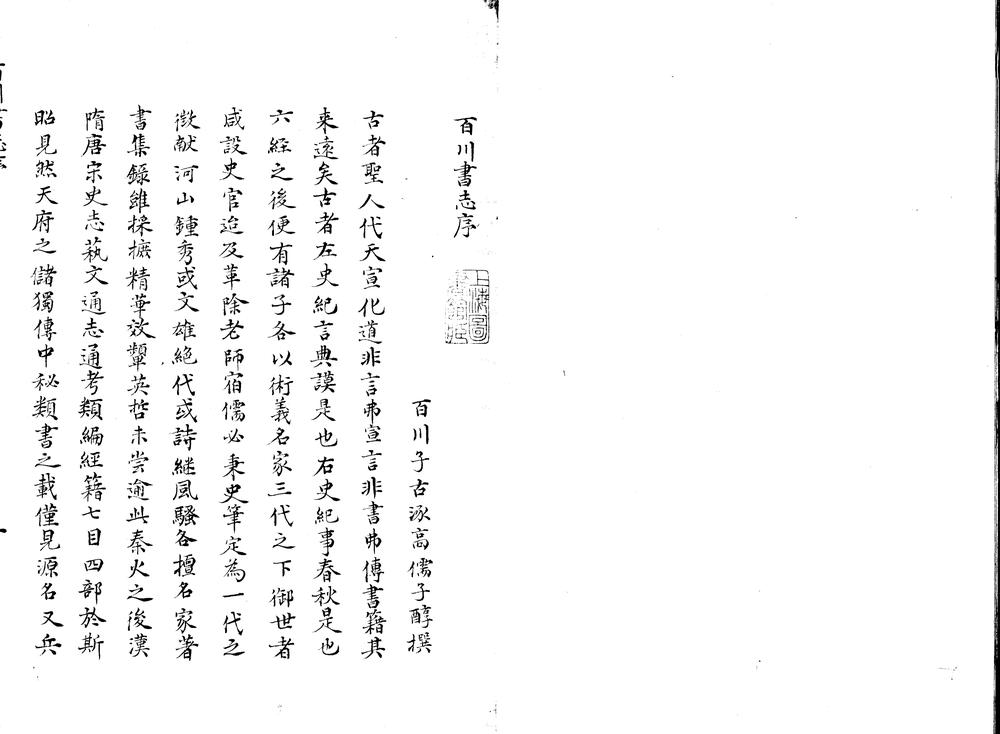 百川書志序
上海圖書館藏
百川子古涿高儒子醇撰
古者聖人代天宣化道非言弗宣言非書弗傳書籍其
来遠矣古者左史紀言典謨是也右史紀事春秋是也
六經之後便有諸子各以術義名家三代之下御世者
咸設史官迨及革除老師宿儒必秉史筆定為一代之
徴献河山鍾秀或文雄絶代或詩継風騷各擅名家著
書集錄雖採摭精華效顰英哲未嘗逾此秦火之後漢
隋唐宋史志蓺文通志通考類編經籍七目四部於斯
昭見然天府之儲獨傳中秘類書之載僅見源名又兵
百川書志序
一